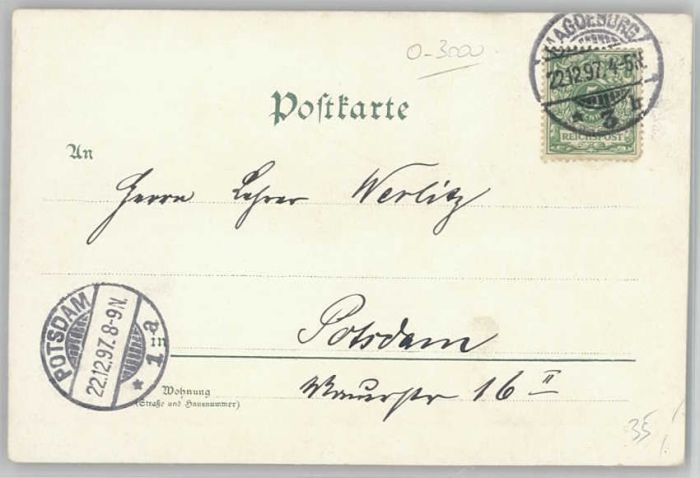 O-3000
MAGDEBURG
22.12.97. 4-5N.
* 3 h
5
REICHSPOST
Postkarte
An
Herrn Lehrer Werlitz
POTSDAM
22.12.97. 8-9N.
* 1 a
in
Potsdam
Wohnung
(Straße und Hausnummer)
Mauerstr 16 II
35